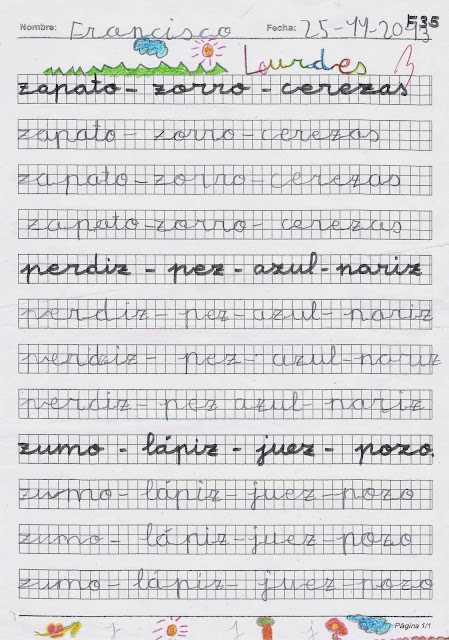 Nombre: Francisco Fecha: 25-11-2013 F35
Lourdes
zapato - zorro - cerezas
zapato - zorro - cerezas
zapato - zorro - cerezas
zapato - zorro - cerezas
perdiz - pez - azul - nariz
perdiz - pez - azul - nariz
perdiz - pez - azul - nariz
perdiz - pez azul - nariz
zumo - lápiz - juez - pozo.
zumo - lápiz - juez - pozo
zumo - lápiz - juez - pozo
zumo - lápiz - juez - pozo
Página 1/1